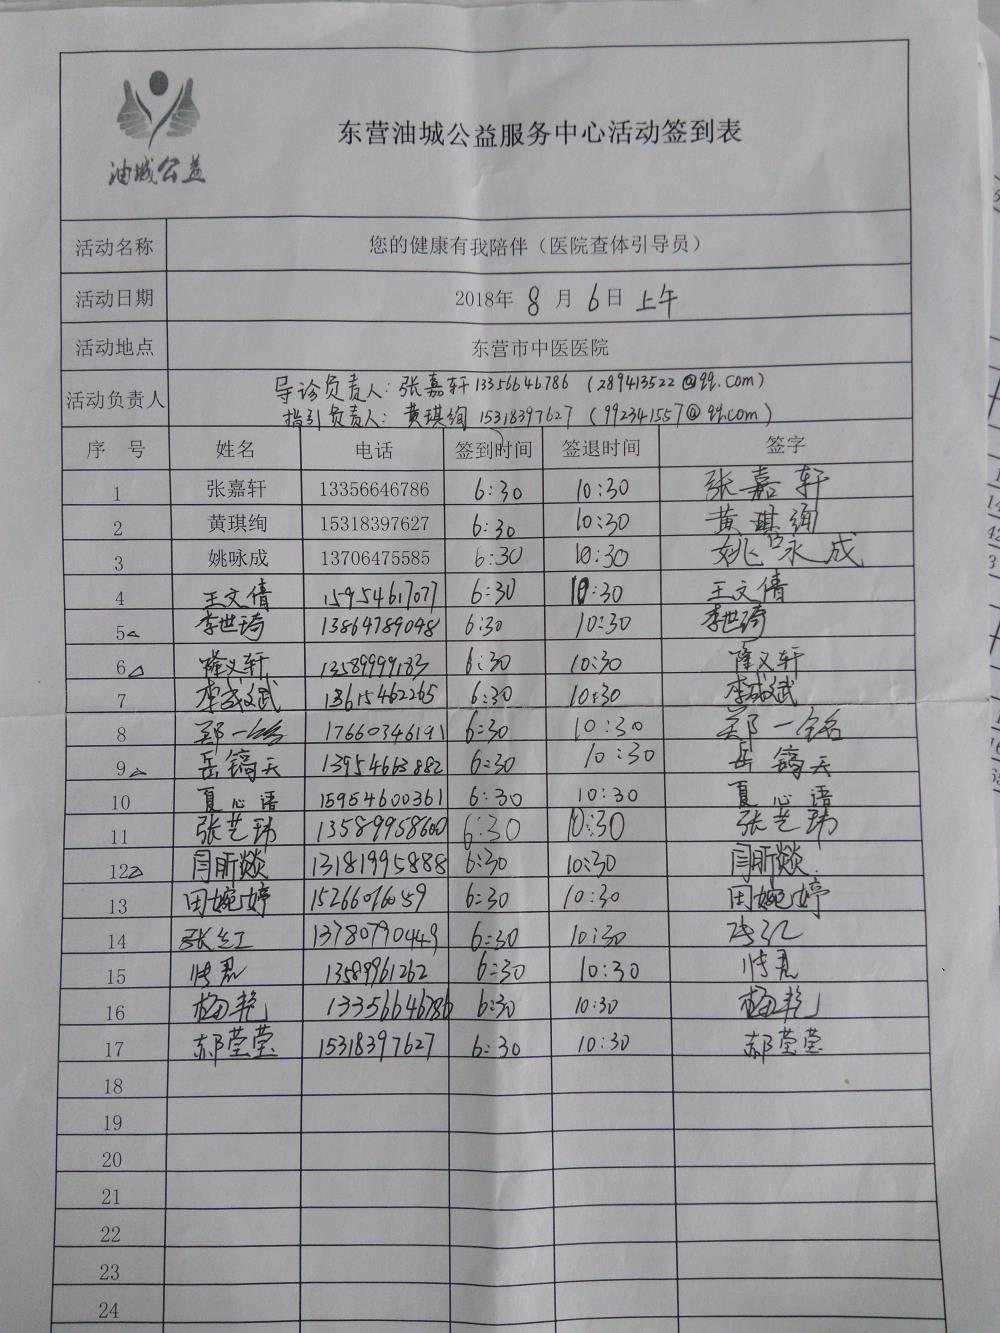 油城公益
东营油城公益服务中心活动签到表
活动名称 您的健康有我陪伴（医院查体引导员）
活动日期 2018年 8 月 6 日 上午
活动地点 东营市中医医院
活动负责人 导诊负责人：张嘉轩 13356646786 （289413522@qq.com）
指引负责人：黄琪绚 15318397627 （992341557@qq.com）
序 号 姓名 电话 签到时间 签退时间 签字
1 张嘉轩 13356646786 6:30 10:30 张嘉轩
2 黄琪绚 15318397627 6:30 10:30 黄琪绚
3 姚咏成 13706475585 6:30 10:30 姚咏成
4 王文倩 15954617077 6:30 10:30 王文倩
5 李世琦 13864789048 6:30 10:30 李世琦
6 隆义轩 13589999183 6:30 10:30 隆义轩
7 李成斌 13615462265 6:30 10:30 李成斌
8 郑一铭 17660346191 6:30 10:30 郑一铭
9 岳镐天 13954663882 6:30 10:30 岳镐天
10 夏心语 15954600361 6:30 10:30 夏心语
11 张艺玮 13589958600 6:30 10:30 张艺玮
12 闫昕燚 13181995888 6:30 10:30 闫昕燚
13 田婉婷 15266076059 6:30 10:30 田婉婷
14 张红 13780790449 6:30 10:30 张红
15 13589961262 6:30 10:30
16 梅艳 13356646786 6:30 10:30 梅艳
17 郝莹莹 15318397627 6:30 10:30 郝莹莹
18
19
20
21
22
23
24